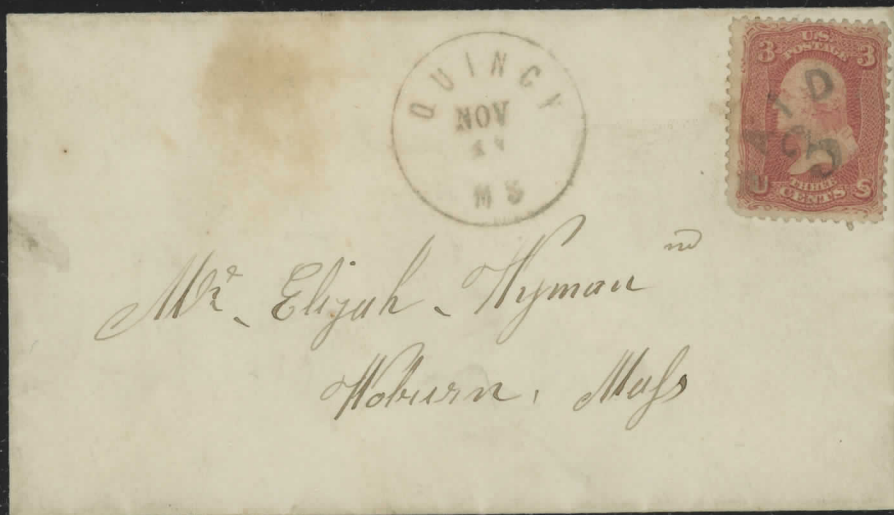 QUINCY
NOV
MS
3 U.S. 3
POSTAGE
PAID
U THREE S
CENTS
Mr. Elijah Wyman nd
Woburn, Mass